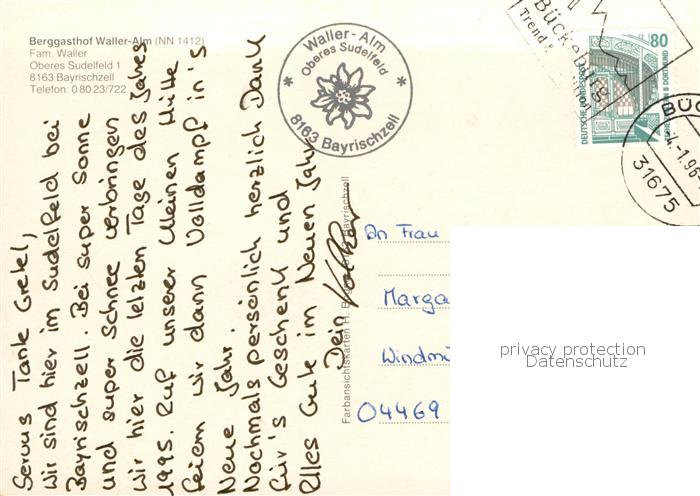 Berggasthof Waller-Alm (NN 1412)
Fam. Waller
Oberes Sudelfeld 1
8163 Bayrischzell
Telefon: 0 80 23/722
Waller-Alm
Oberes Sudelfeld
8163 Bayrischzell
Bückeburg
Trend &
DEUTSCHE BUNDESPOST
80
DORTMUND
BÜC
-4.-1.96-
31675
Servus Tante Gretel,
wir sind hier im Sudelfeld bei
Bayrischzell. Bei super Sonne
und super Schnee verbringen
wir hier die letzten Tage des Jahres
1995. Auf unserer kleinen Hütte
feiern wir dann Volldampf in's
Neue Jahr.
Nochmals persönlich herzlich Dank
für's Geschenk und
Alles Gute im Neuen Jahr
Dein Volker
Farbansichtskarten H.
Bayrischzell
An Frau
Marga
Windmü
04469
privacy protection
Datenschutz